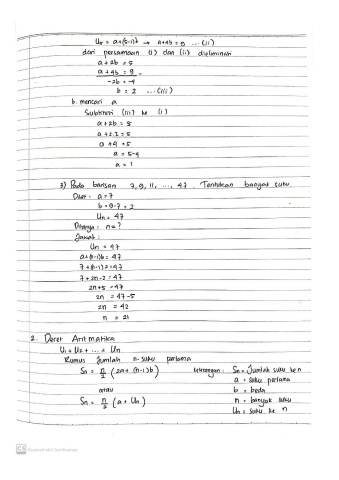 U₅ = a+(5-1)b → a+4b = 9 ... (ii)
dari persamaan (i) dan (ii) dieliminasi
a + 2b = 5
a + 4b = 9 -
-2b = -4
b = 2 ... (iii)
b. mencari a
Substitusi (iii) ke (i)
a + 2b = 5
a + 2.2 = 5
a + 4 = 5
a = 5-4
a = 1
3) Pada barisan 7, 9, 11, ..., 47. Tentukan banyak suku.
Diket : a = 7
b = 9-7 = 2
Un = 47
Ditanya : n = ?
Jawab :
Un = 47
a+(n-1)b = 47
7 + (n-1)2 = 47
7 + 2n-2 = 47
2n+5 = 47
2n = 47-5
2n = 42
n = 21
2. Deret Aritmatika
U₁ + U₂ + ... + Un
Rumus Jumlah n-suku pertama
Sn = n/2 (2a + (n-1)b) keterangan : Sn = Jumlah suku ke n
a = suku pertama
atau b = beda
Sn = n/2 (a + Un) n = banyak suku
Un = suku ke n
CS Scanned with CamScanner